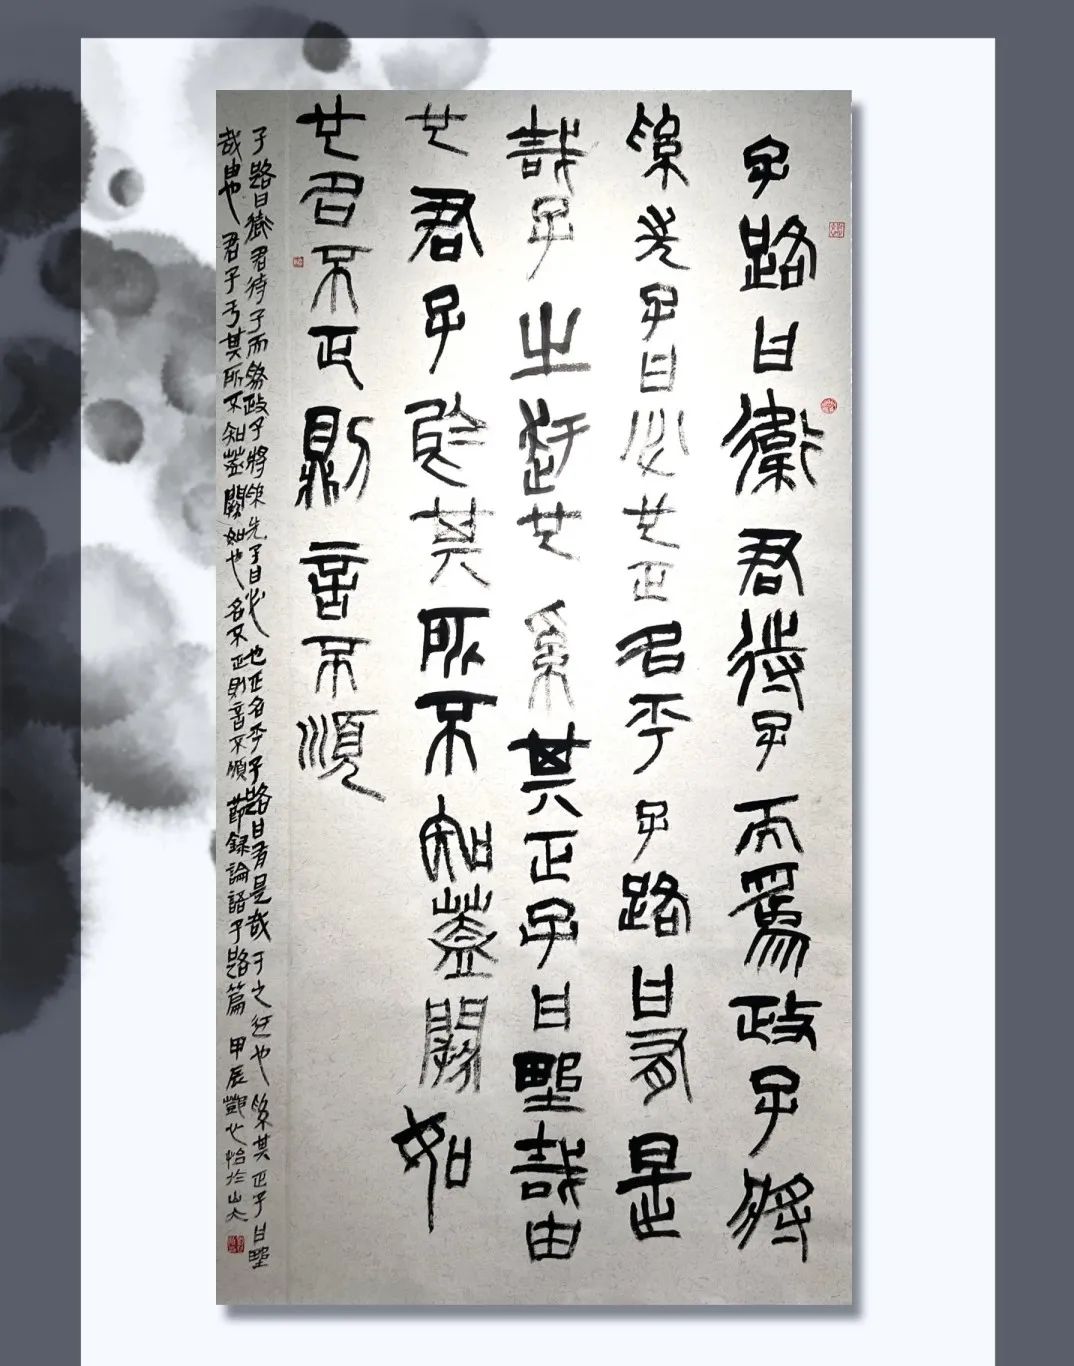 子路曰衛君待子而為政子將
奚先子曰必也正名乎子路曰有是
哉子之迂也奚其正子曰野哉由
也君子於其所不知蓋闕如
也名不正則言不順
子路曰衛君待子而為政子將奚先子曰必也正名乎子路曰有是哉子之迂也奚其正子曰野
哉由也君子于其所不知蓋闕如也名不正則言不順節錄論語子路篇甲辰鄧心怡於山大